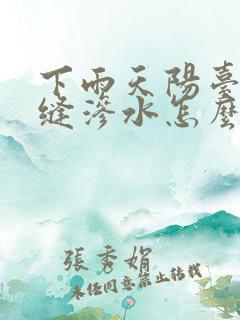 下雨天陽臺
縫滲水怎麼
張秀娟
未经同意禁止转载